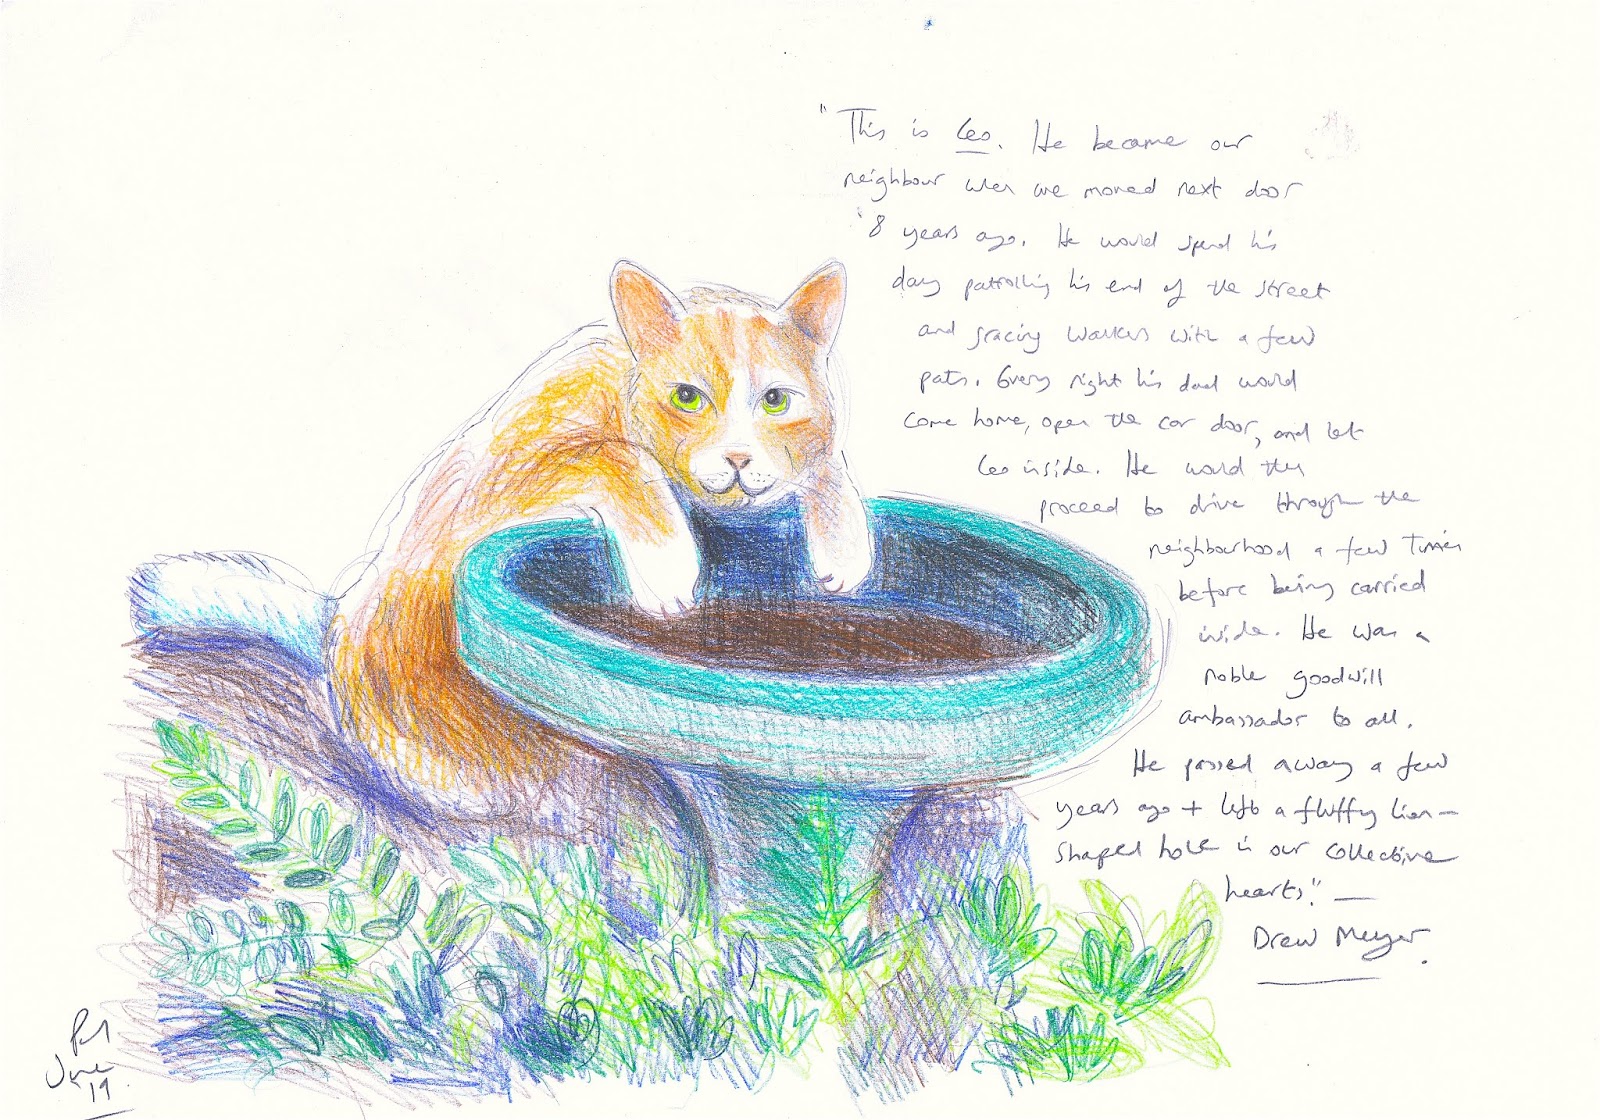 "This is Leo. He became our
neighbour when we moved next door
'8 years ago. He would spend his
day patrolling his end of the street
and gracing walkers with a few
pats. Every night his dad would
come home, open the car door, and let
Leo inside. He would then
proceed to drive through the
neighbourhood a few times
before being carried
inside. He was a
noble goodwill
ambassador to all.
He passed away a few
years ago + left a fluffy lion-
shaped hole in our collective
hearts." —
Drew Meyer.
June
'19